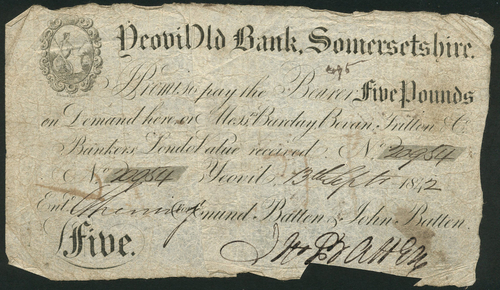 Yeovil Old Bank, Somersetshire.
I Promise to pay the Bearer Five Pounds
on Demand here or Messrs Barclay Bevan Tritton & Co.
Bankers London Value received No. 20954
No. 20954 Yeovil 13th Sept 1842
Entd Edmund Batten & John Batten.
Five. Batten